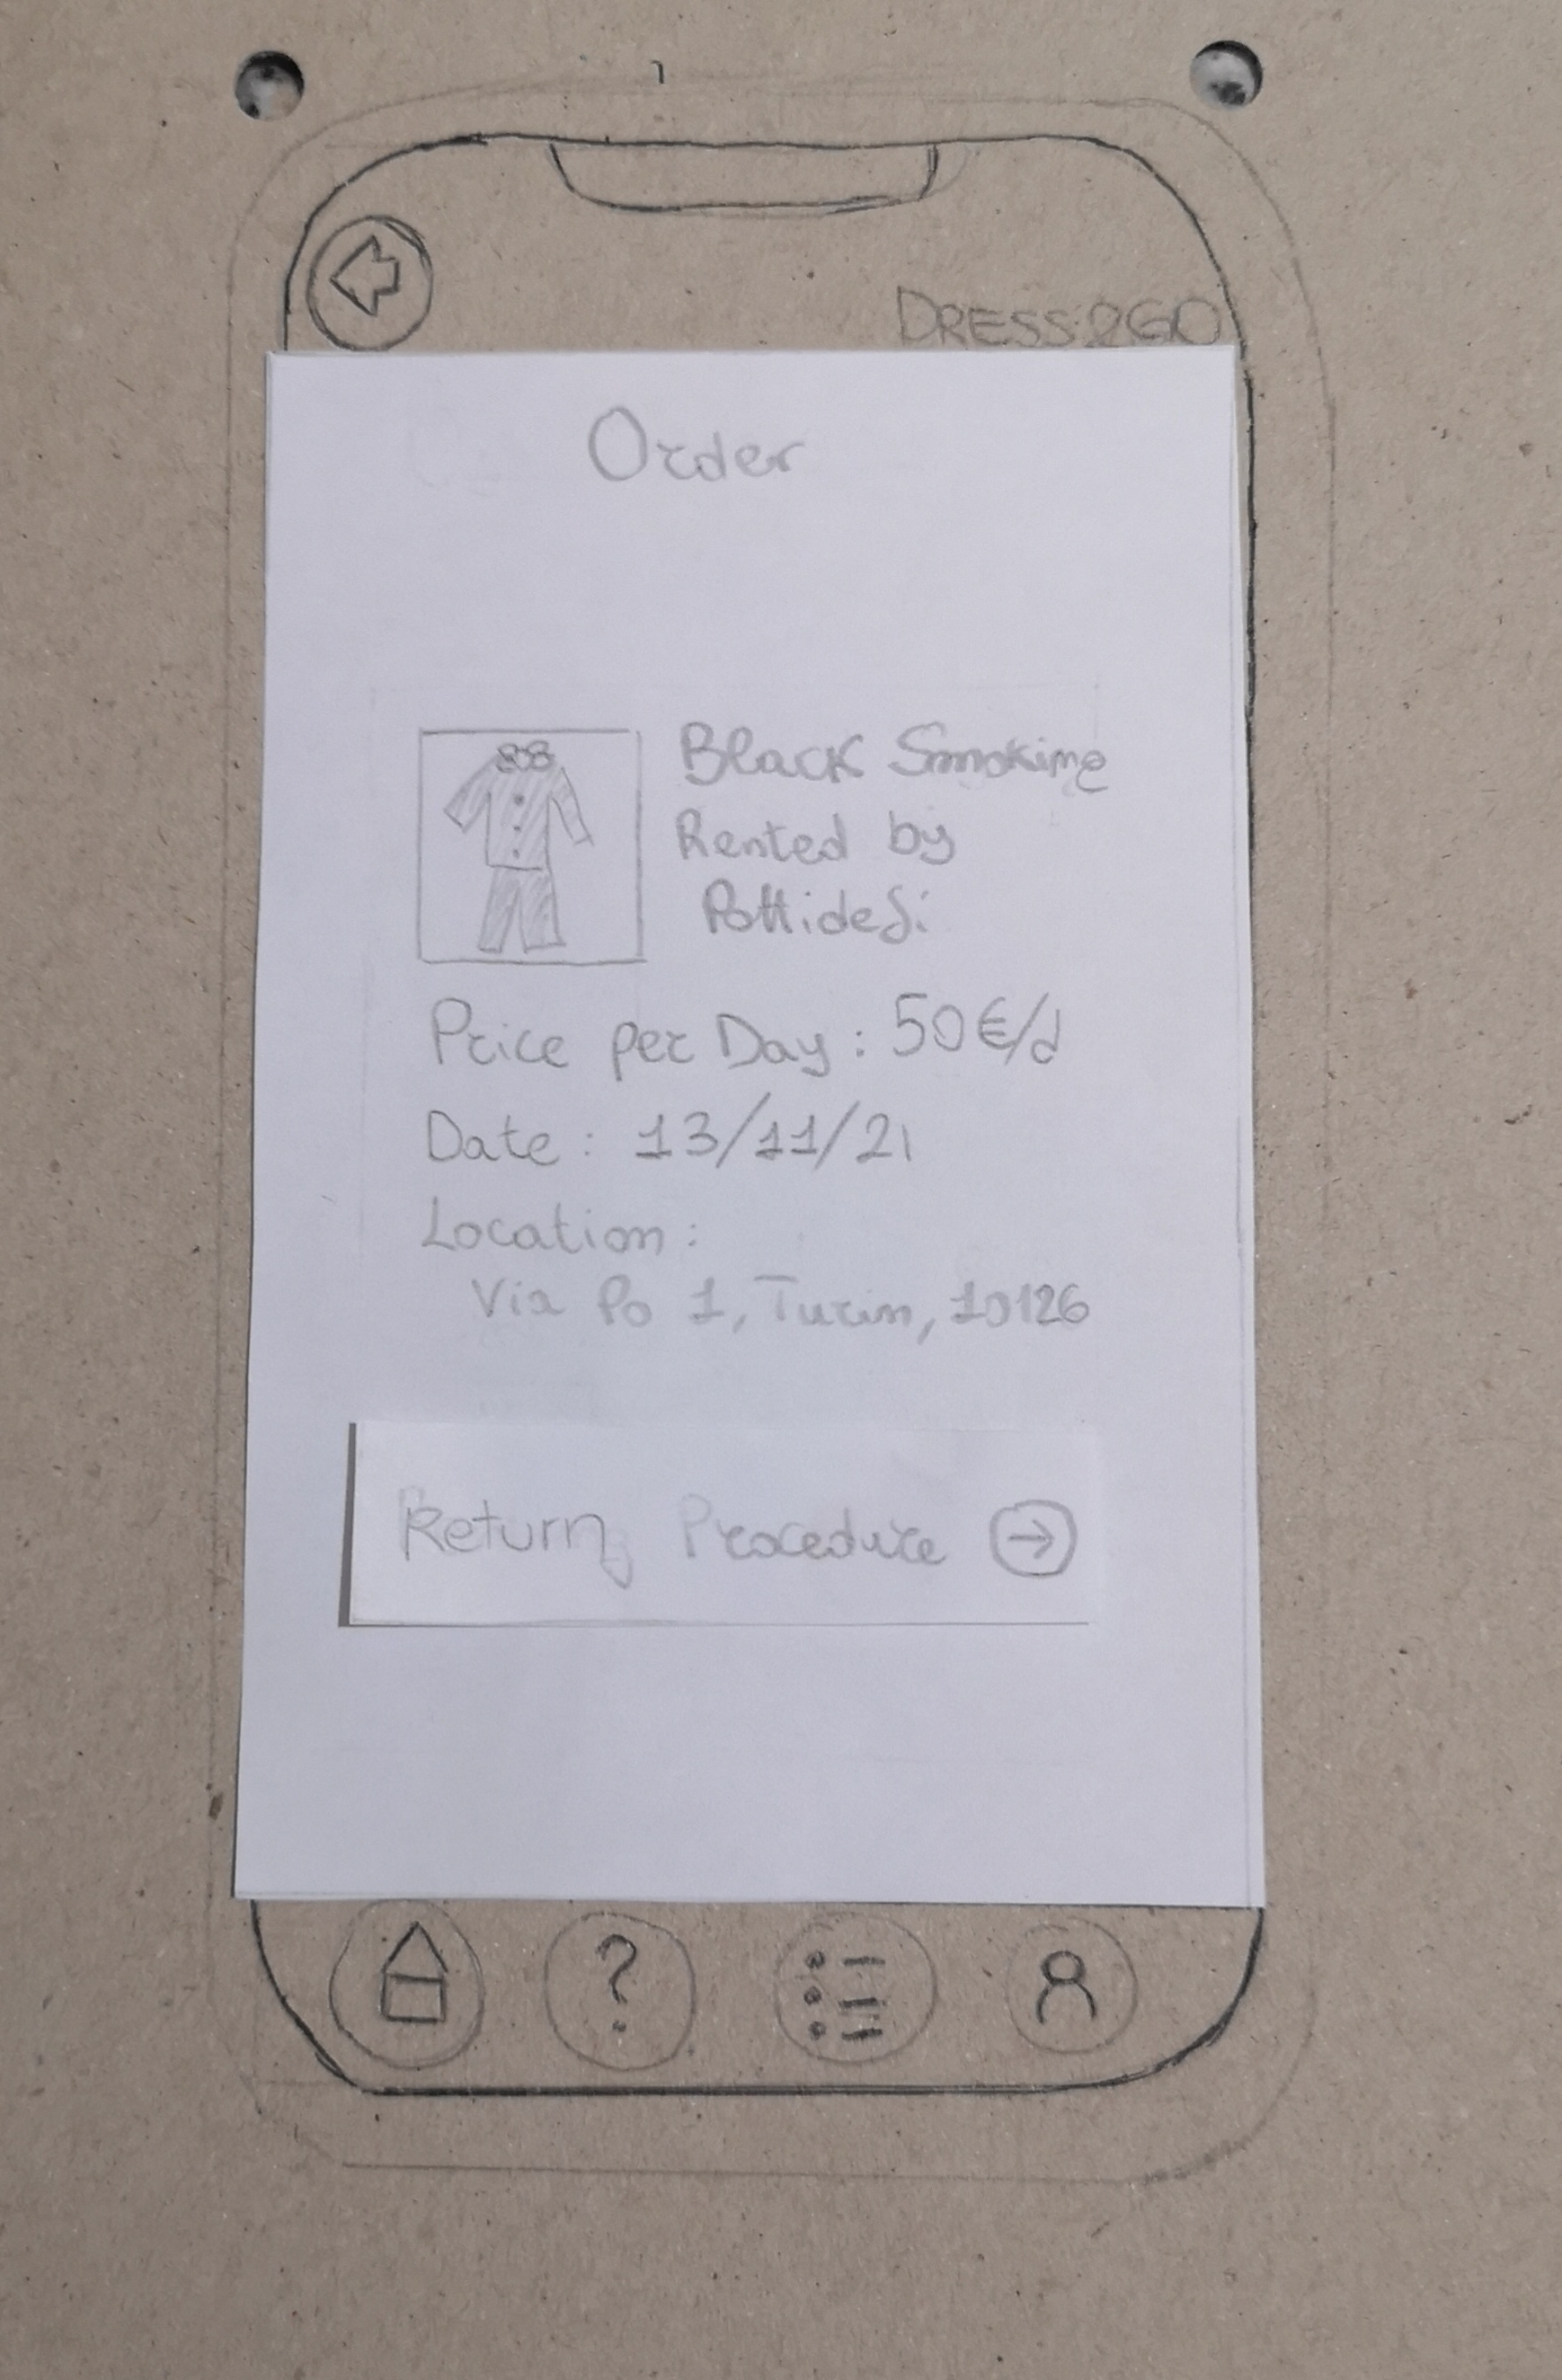 DRESS2GO
Order
Black Smoking
Rented by
Price per Day : 50€/d
Date : 13/11/21
Location :
Via Po 1, Turin, 10126
Return Procedure
?